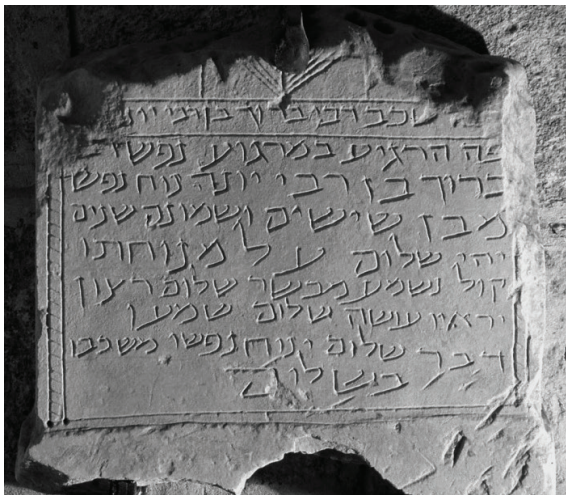 שכב רבי ברוך בן רבי יונה
פה הרגיע במרגוע נפש
ברוך בן רבי יונה נוח נפש
מבן שישים ושמונה שנים
יהי שלום על מנוחתו
קול נשמע מבשר שלום רצון
יראיו עושה שלום שמען
דבר שלום ינוח נפשו משכבו
בשלום